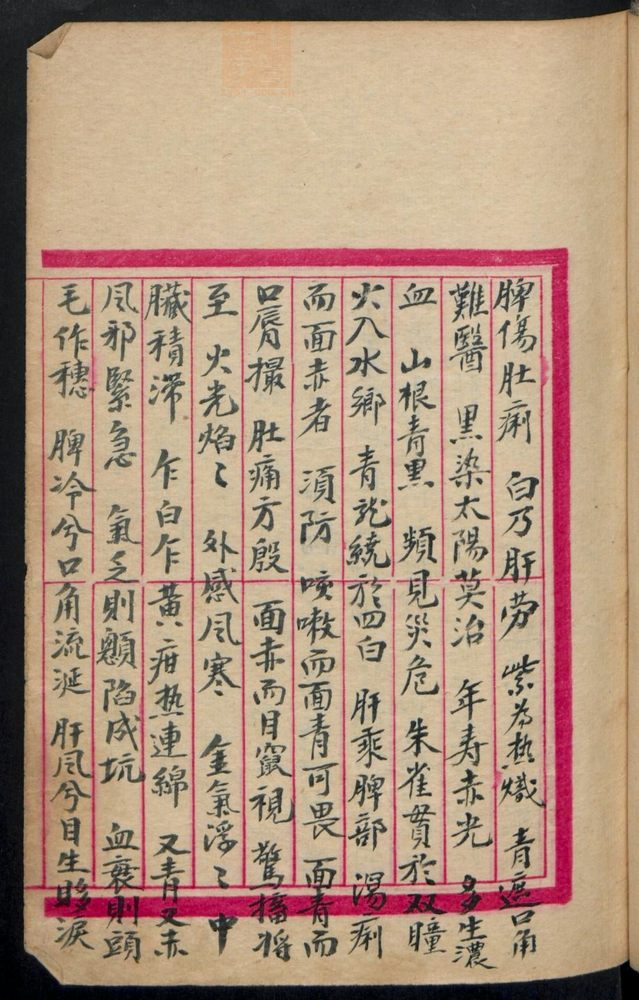 脾傷肚痢 白乃肝劳 紫为热熾 青遮口角
難醫 黒染太陽莫治 年寿赤光 多生濃
血 山根青黒 頻見災危 朱雀贯於双瞳
火入水鄉 青龙繞於四白 肝乘脾部 瀉痢
而面赤者 須防 咳嗽而面青可畏 面青而
口唇撮 肚痛方殷 面赤而目竄視 驚搐将
至 火光焰〻 外感风寒 金氣浮〻 中
臟積滞 乍白乍黄 疳热連綿 又青又赤
风邪緊急 氣乏則顖陷成坑 血衰則頭
毛作穗 脾冷兮口角流涎 肝风兮目生眵淚